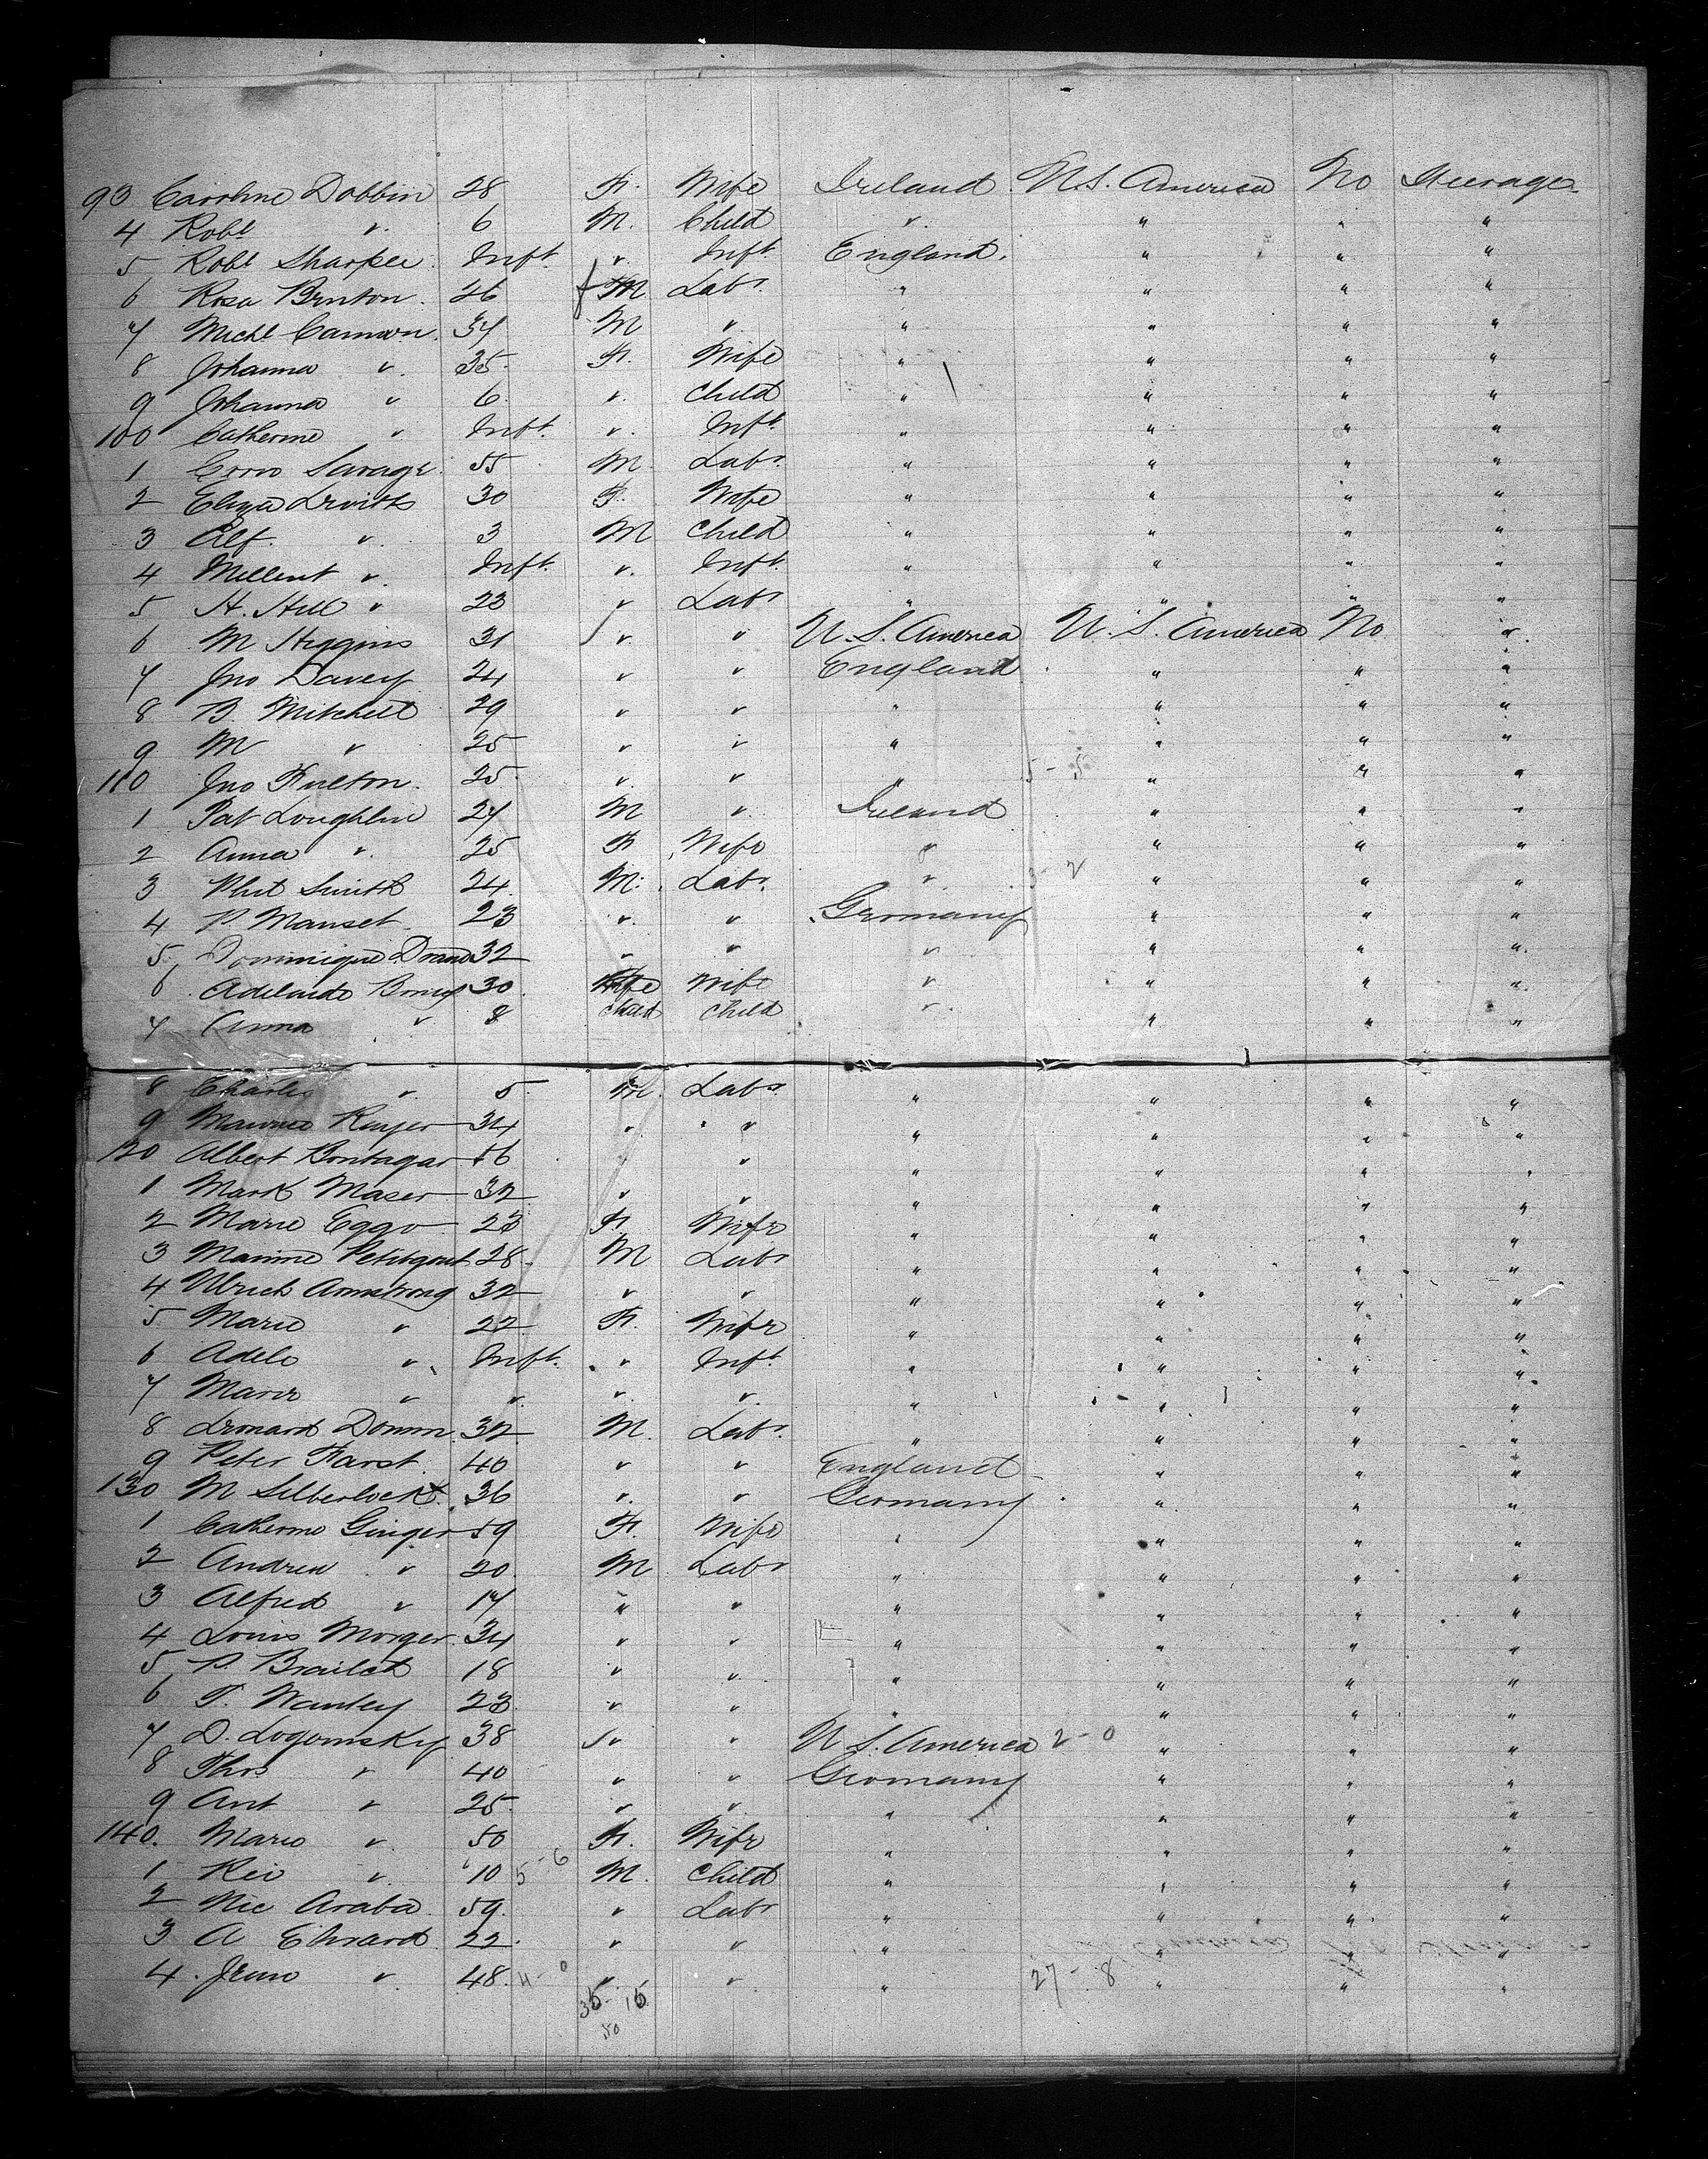 93 Caroline Dobbin 28 F. Wife Ireland U.S. America No Steerage
4 Robt " 6 M. Child " " " "
5 Robt Sharplee Inft. " Inft. England. " " "
6 Rosa Brinton. 26 f M Labr. " " " "
7 Michl Cannon. 34 M " " " " "
8 Johanna " 35 F. Wife " " " "
9 Johanna " 6 " Child " " " "
100 Catherine " Inft. " Inft. " " " "
1 Savage 55 M Labr. " " " "
2 Eliza 30 F. Wife " " " "
3 Alf. " 3 M Child " " " "
4 Millent " Inft. " Inft. " " " "
5 H. Hill " 23 " Labr " " " "
6 M Higgins 31 " " U.S. America U.S. America No "
7 Jno Davey 24 " " England " " "
8 B. Mitchell 29 " " " " " "
9 M " 25 " " " " " "
110 Jno Fulton. 25 " " " 5-5 " " "
1 Pat Loughlin 27 M " Ireland " " "
2 Anna " 25 F Wife " " " "
3 Smith 24 M. Labr. " 3-2 " " "
4 P. Manset 23 " " Germany " " "
5 Dominique 32 " " " " " "
6 Adelaide 30 Wife " " " "
7 Anna " 8 Child Child " " " "
8 Charles " 5 M. Labr. " " " "
9 34 " " " " " "
120 Albert 16 " " " " "
1 Mark Maser 32 " " " " " "
2 Marie Eggo 23 F. Wife " " " "
3 28 M Labr " " " "
4 Ulrich Armstrong 32 " " " " " "
5 Marie " 22 F. Wife " " " "
6 Adele " Inft. " Inft. " " " "
7 Marie " " " " " " " "
8 Leonard 32 M. Labr. " " " "
9 Peter Farst 40 " " England " " "
130 M Silberlock 36 " " Germany " " "
1 Catherine Ginger 59 F. Wife " " " "
2 Andrew " 20 M Labr " " " "
3 Alfred " 17 " " " " " "
4 Louis Morger 34 " " " " " "
5 P. 18 " " " " " "
6 T. Wanley 23 " " " " " "
7 D. Logomsky 38 " " U.S. America 2-0 " " "
8 Thos " 40 " " Germany " " "
9 Ant " 25 " " " " " "
140. Marie " 50 F. Wife " " " "
1 " 10 5-6 M. Child " " " "
2 Nic Araba 59. " Labr " " " "
3 A 22 " " " " " "
4 Jean " 48 4-0 " " " 27-8 " " "
35 15
50